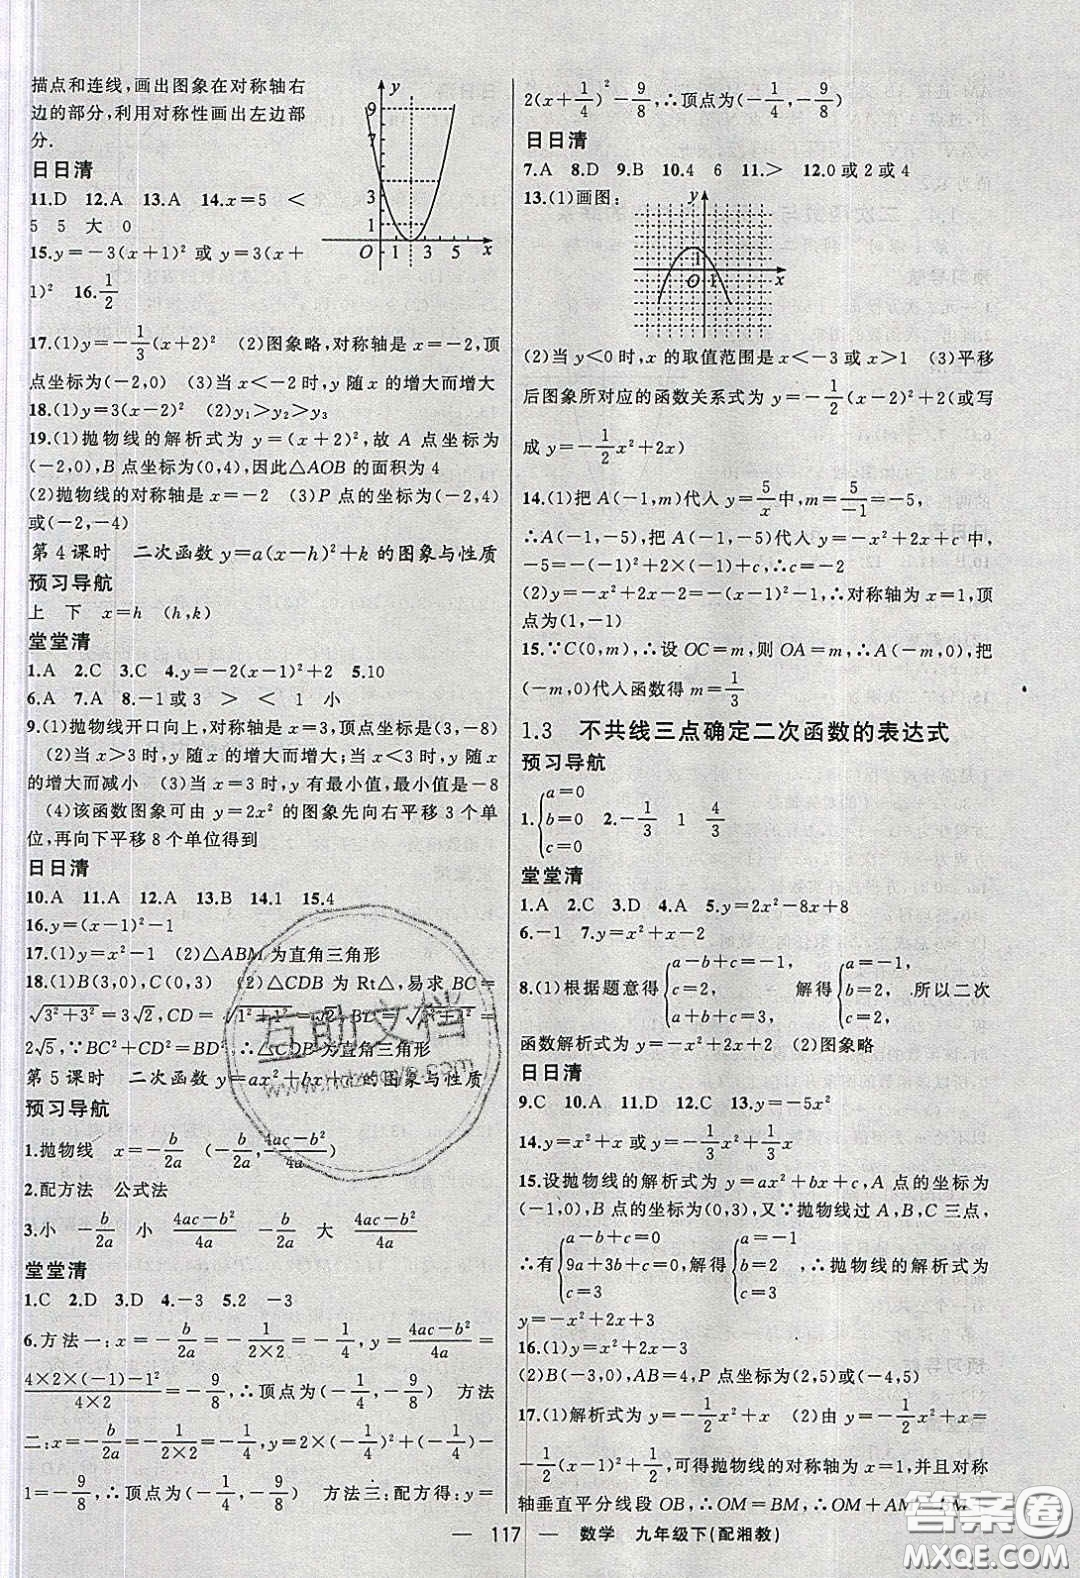 描点和连线,画出图象在对称轴右
边的部分,利用对称性画出左边部
分.
日日清
11.D 12.A 13.A 14.x=5 <
5 5 大 0
15.y=-3(x+1)² 或 y=3(x+
1)² 16.1/2
17.(1)y=-1/3(x+2)² (2)图象略,对称轴是 x=-2,顶
点坐标为(-2,0) (3)当 x<-2 时,y 随 x 的增大而增大
18.(1)y=3(x-2)² (2)y₁>y₂>y₃
19.(1)抛物线的解析式为 y=(x+2)²,故 A 点坐标为
(-2,0),B 点坐标为(0,4),因此△AOB 的面积为 4
(2)抛物线的对称轴是 x=-2 (3)P 点的坐标为(-2,4)
或(-2,-4)
第 4 课时 二次函数 y=a(x-h)²+k 的图象与性质
预习导航
上 下 x=h (h,k)
堂堂清
1.A 2.C 3.C 4.y=-2(x-1)²+2 5.10
6.A 7.A 8.-1或3 > < 1 小
9.(1)抛物线开口向上,对称轴是 x=3,顶点坐标是(3,-8)
(2)当 x>3 时,y 随 x 的增大而增大;当 x<3 时,y 随 x
的增大而减小 (3)当 x=3 时,y 有最小值,最小值是-8
(4)该函数图象可由 y=2x² 的图象先向右平移 3 个单
位,再向下平移 8 个单位得到
日日清
10.A 11.A 12.A 13.B 14.1 15.4
16.y=(x-1)²-1
17.(1)y=x²-1 (2)△ABM 为直角三角形
18.(1)B(3,0),C(0,3) (2)△CDB 为 Rt△,易求 BC=
√(3²+3²)=3√2,CD=√(1²+1²)=√2,BD=
2√5,∵BC²+CD²=BD²,∴△CDB 为直角三角形
第 5 课时 二次函数 y=ax²+bx+c 的图象与性质
预习导航
1.抛物线 x=-b/2a (-b/2a,(4ac-b²)/4a)
2.配方法 公式法
3.小 -b/2a 小 (4ac-b²)/4a -b/2a 大 (4ac-b²)/4a
堂堂清
1.C 2.D 3.D 4.-3 5.2 -3
6.方法一:x=-b/2a=-1/(2×2)=-1/4,y=(4ac-b²)/4a=
(4×2×(-1)-1²)/(4×2)=-9/8,∴顶点为(-1/4,-9/8) 方法
二:x=-b/2a=-1/(2×2)=-1/4,y=2×(-1/4)²+(-1/4)-
1=-9/8,∴顶点为(-1/4,-9/8) 方法三:配方得:y=
y
9
3
1
O 1 3 5 x
2(x+1/4)²-9/8,∴顶点为(-1/4,-9/8)
日日清
7.A 8.D 9.B 10.4 6 11.> 12.0 或 2 或 4
13.(1)画图:
y
1
O 1 x
(2)当 y<0 时,x 的取值范围是 x<-3 或 x>1 (3)平移
后图象所对应的函数关系式为 y=-1/2(x-2)²+2(或写
成 y=-1/2x²+2x)
14.(1)把 A(-1,m)代入 y=5/x中,m=5/-1=-5,
∴A(-1,-5),把 A(-1,-5)代入 y=-x²+2x+c 中,
-5=-(-1)²+2×(-1)+c,∴c=-2
(2)y=-x²+2x-2=-(x-1)²-1,∴对称轴为 x=1,顶
点为(1,-1)
15.∵C(0,m),∴设 OC=m,则 OA=m,∴A(-m,0),把
(-m,0)代入函数得 m=1/3
1.3 不共线三点确定二次函数的表达式
预习导航
1.{a=0 b=0 c=0 2.-1/3 1 4/3
堂堂清
1.A 2.C 3.D 4.A 5.y=2x²-8x+8
6.-1 7.y=x²+x-2
8.(1)根据题意得{a-b+c=1, c=2, a+b+c=3, 解得{a=1, b=2, c=2, .所以二次
函数解析式为 y=x²+2x+2 (2)图象略
日日清
9.C 10.A 11.D 12.C 13.y=-5x²
14.y=x²+x 或 y=-1/3x²+1/3x
15.设抛物线的解析式为 y=ax²+bx+c,A 点的坐标为
(-1,0),B 点的坐标为(0,3),又∵抛物线过 A,B,C 三点,
∴有{a-b+c=0 9a+3b+c=0,解得 c=3 {a=-1 b=2 c=3 ,∴抛物线的解析式为
y=-x²+2x+3
16.(1)y=x²+2x-3
(2)B(-3,0),AB=4,P 点坐标为(2,5)或(-4,5)
17.(1)解析式为 y=-1/2x²+x (2)由 y=-1/2x²+x=
-1/2(x-1)²+1/2,可得抛物线的对称轴为 x=1,并且对称
轴垂直平分线段 OB,∴OM=BM,∴OM+AM=
— 117 — 数学 九年级下(配湘教)
互助文档
答案圈
MXQE.COM